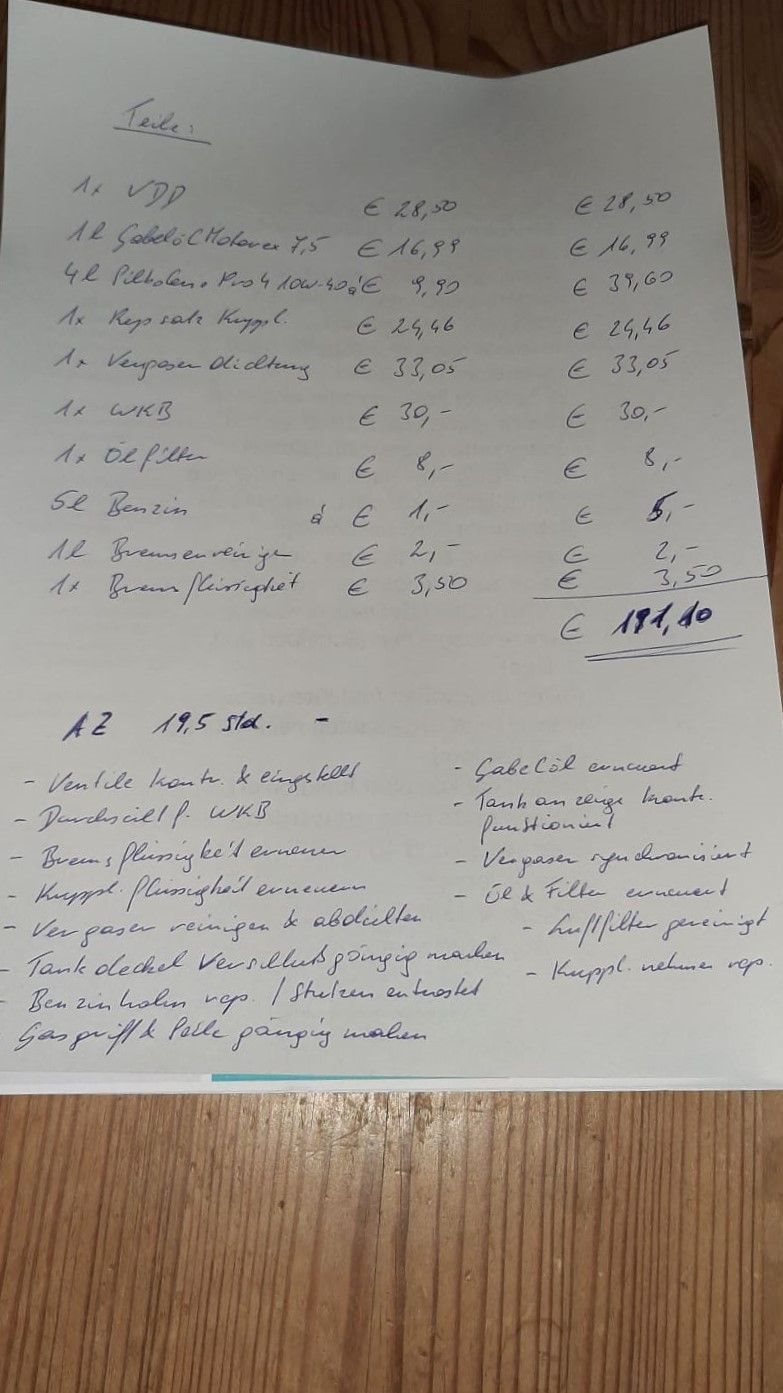 Teile:
1x VDD € 28,50 € 28,50
1l Gabelöl Motorex 7,5 € 16,99 € 16,99
4l Pro 4 10W-40 à € 9,90 € 39,60
1x Rep satz Kuppl. € 24,46 € 24,46
1x Vergaserdichtung € 33,05 € 33,05
1x WKB € 30,- € 30,-
1x Ölfilter € 8,- € 8,-
5l Benzin à € 1,- € 5,-
1l Bremsenreiniger € 2,- € 2,-
1x Bremsflüssigkeit € 3,50 € 3,50
€ 191,10
AZ 19,5 Std. -
- Ventile kontr. & eingestellt
- Durchsicht f. WKB
- Bremsflüssigkeit erneuern
- Kuppl. flüssigkeit erneuern
- Vergaser reinigen & abdichten
- Tankdeckel Verschluß gängig machen
- Benzinhahn rep. / Stutzen entrostet
Gasgriff & Seile gängig machen
- Gabelöl erneuert
- Tankanzeige kontr.
funktioniert
- Vergaser synchronisiert
- Öl & Filter erneuert
- Luftfilter gereinigt
- Kuppl. nehmer rep.